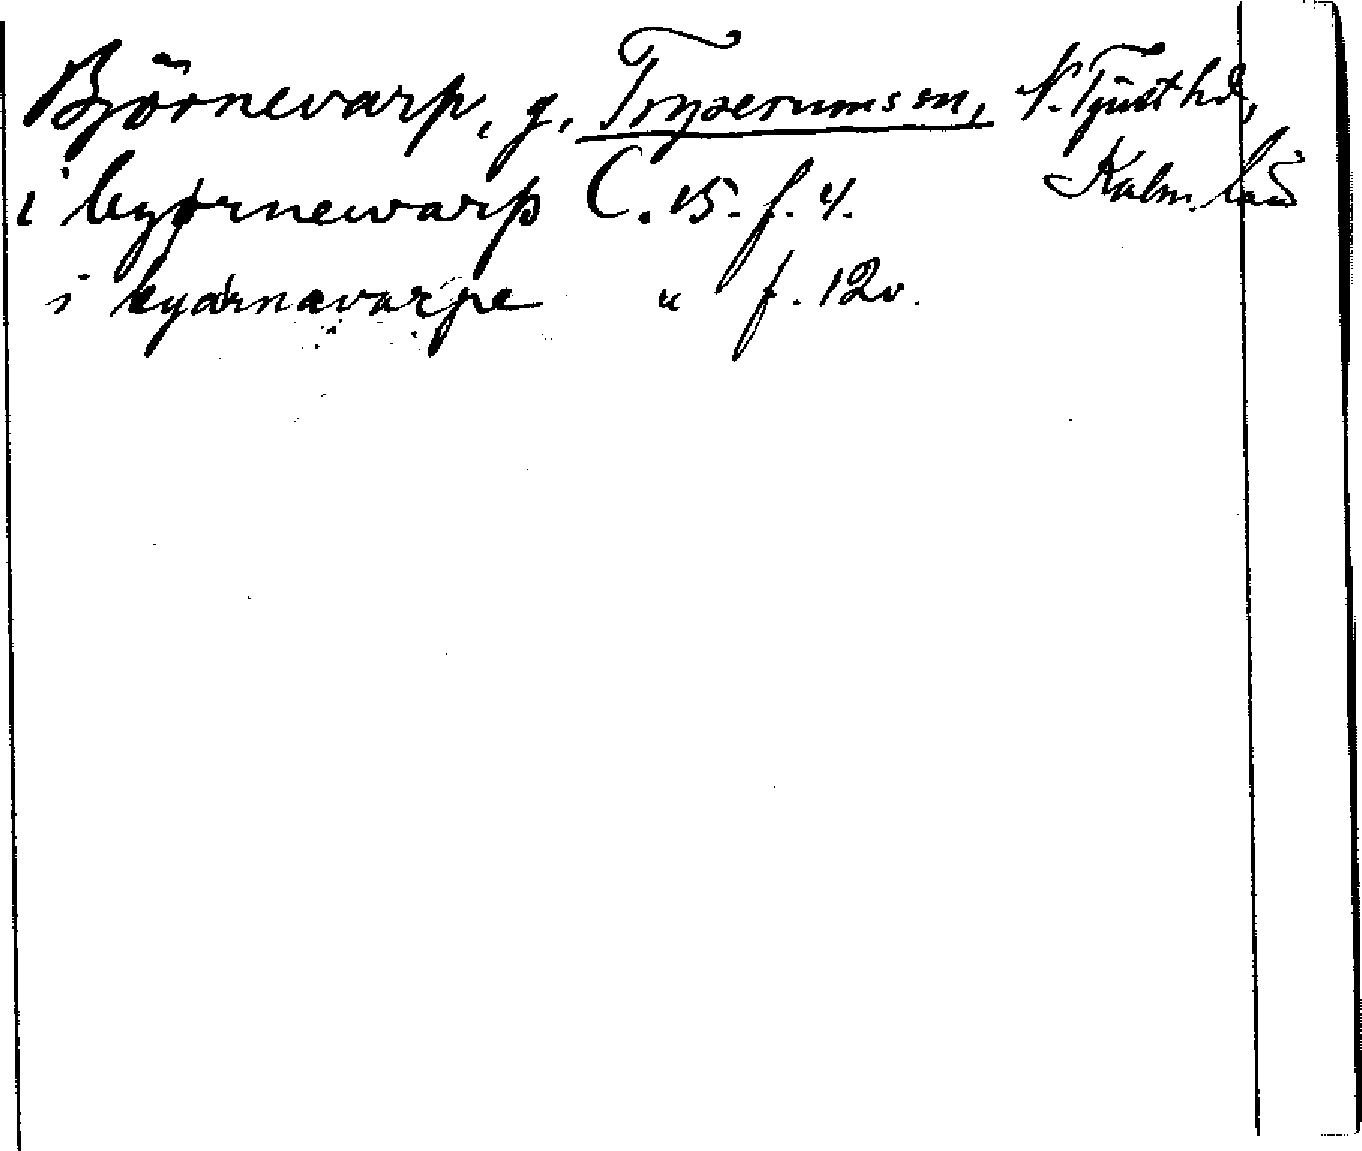 Björnevarp, g, Tryserums sn, N. Tjust hd,
Kalm. län
i byørnewarp C. 15. f. 4.
i byørnavarpe " f. 12v.